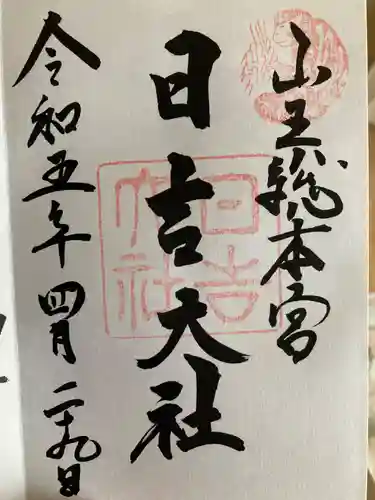 山王総本宮
日吉大社
令和五年四月二十九日
日吉大社